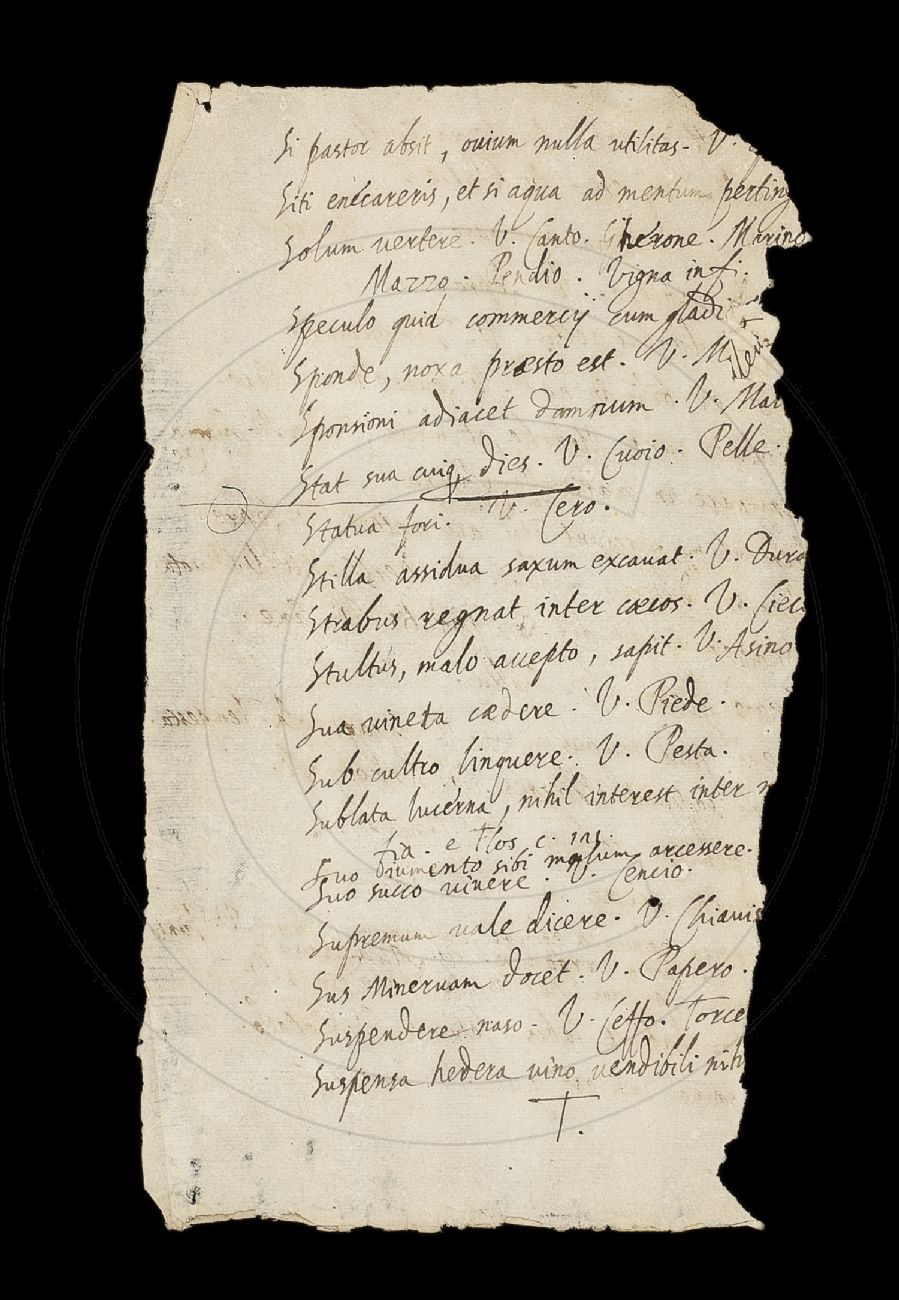 Si pastor absit, ouium nulla utilitas. V.
Siti enecareris, et si aqua ad mentum perting
Solum vertere. V. Canto. Gherone. Marino
Mazzo. Pendio. Vigna in fi.
Speculo quid commercij cum gladi
Sponde, noxa præsto est. V. M
Sponsioni adiacet damnum. V. Mar
Stat sua cuiq dies. V. Cuoio. Pelle.
Statua fori. V. Cero.
Stilla assidua saxum excauat. V. Dura
Strabus regnat inter cœcos. V. Ciec
Stultus, malo accepto, sapit. V. Asino
Sua vineta cædere. V. Piede.
Sub cultro linquere. V. Pesta.
Sublata lucerna, nihil interest inter
Suo iumento sibi malum arcessere.
Suo succo viuere. V. Cencio.
Supremum vale dicere. V. Chiauis
Sus Mineruam docet. V. Papero.
Suspendere naso. V. Ceffo. Torce
Suspensa hedera vino vendibili nih
T.